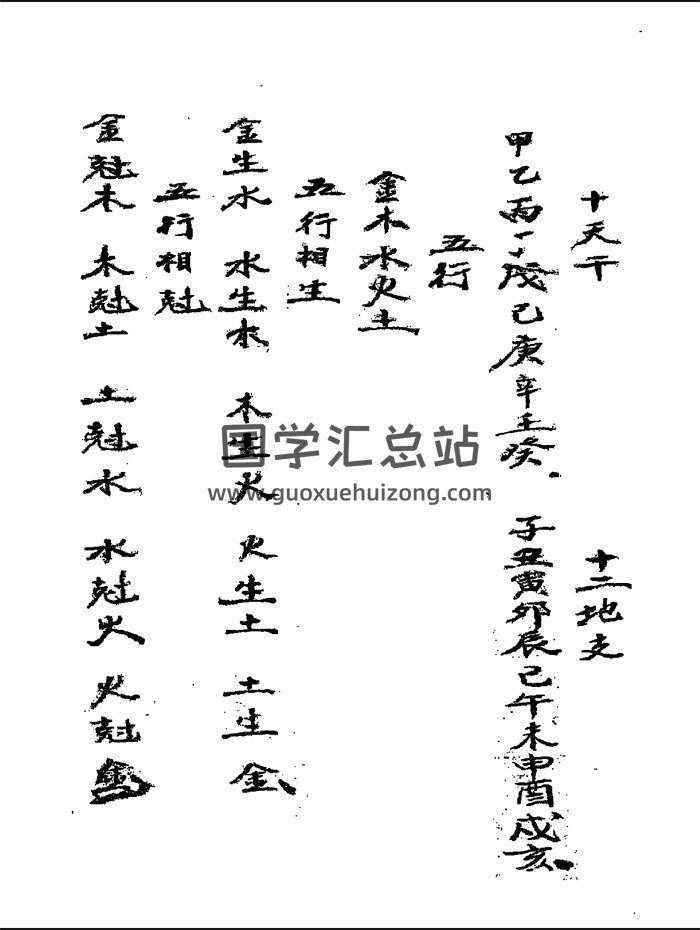 十天干　十二地支
甲乙丙丁戊己庚辛壬癸　子丑寅卯辰巳午未申酉戌亥
五行
金木水火土
五行相生
金生水　水生木　木生火　火生土　土生金
五行相尅
金尅木　木尅土　土尅水　水尅火　火尅金
国学汇总站
www.guoxuehuizong.com